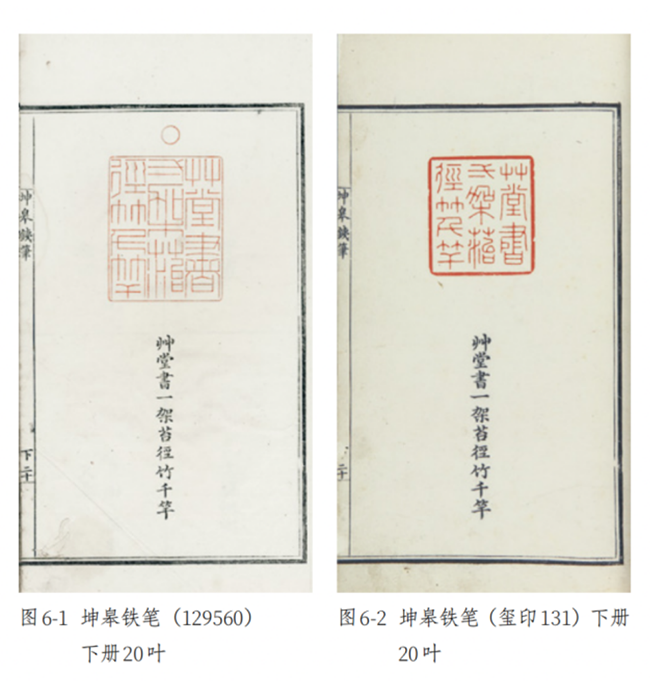 艸堂書
弌架菭
徑竹千竿
艸堂書一架苔徑竹千竿
坤皋鐵筆
下二十
图6-1 坤皋铁笔（129560）
下册20叶
艸堂書
弌架菭
徑竹千竿
艸堂書一架苔徑竹千竿
坤皋鐵筆
二十
图6-2 坤皋铁笔（玺印131）下册
20叶